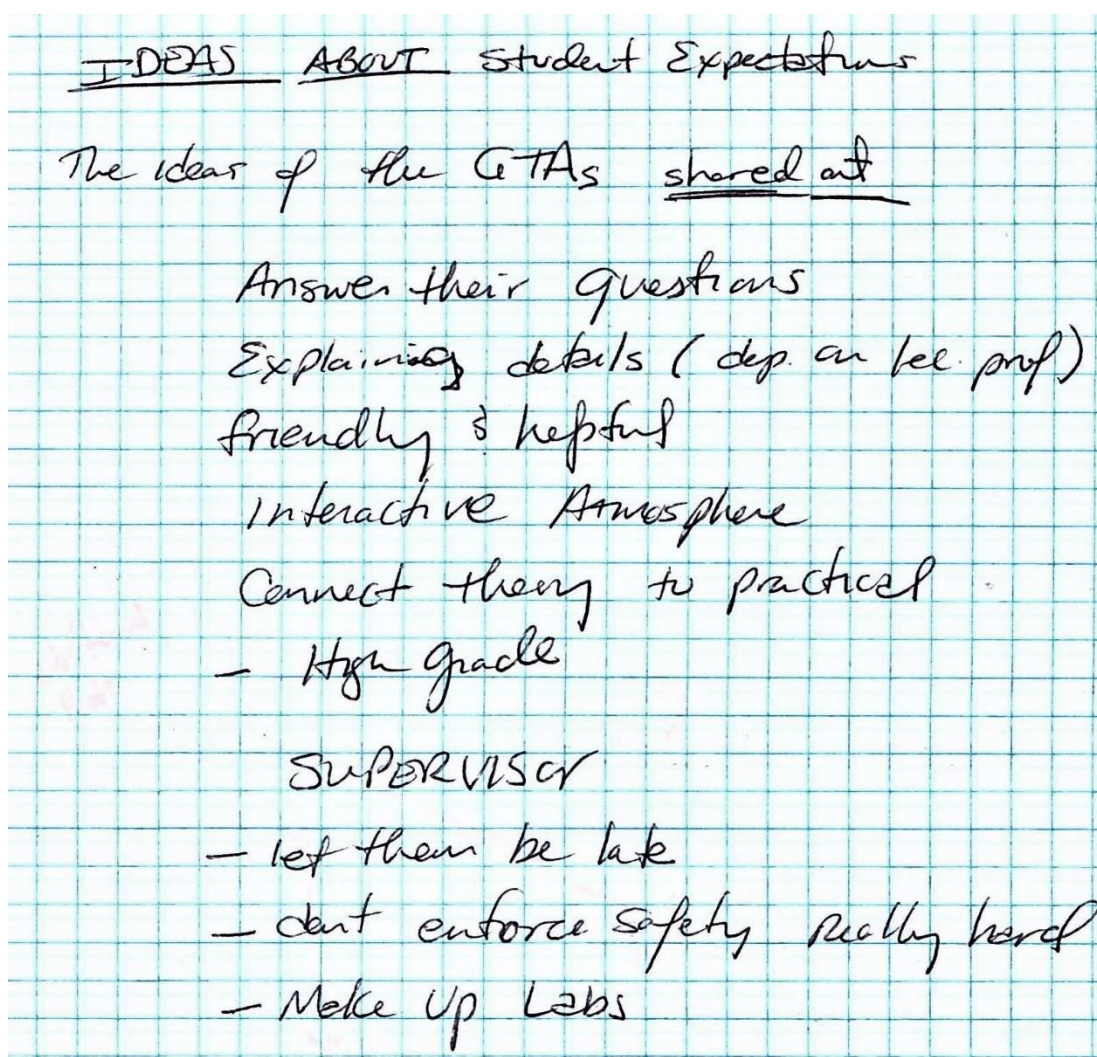 IDEAS ABOUT Student Expectations
The ideas of the GTAs shared out
Answer their questions
Explaining details (dep. on lec. prof)
friendly & helpful
Interactive Atmosphere
Connect theory to practical
- High grade
SUPERVISOR
- let them be late
- dont enforce safety really hard
- Make Up Labs